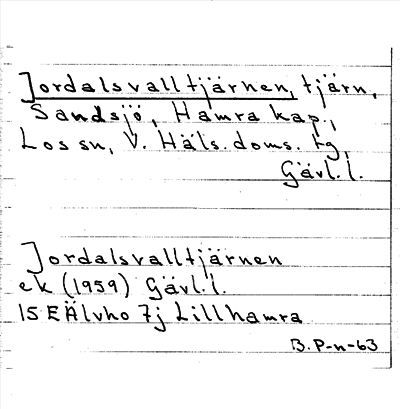 Jordalsvalltjärnen, tjärn,
Sandsjö, Hamra kap.,
Los sn, V. Häls. doms. tg,
Gävl. l.
Jordalsvalltjärnen
ek (1959) Gävl. l.
15 E Älvho 7j Lillhamra
B. P-n-63